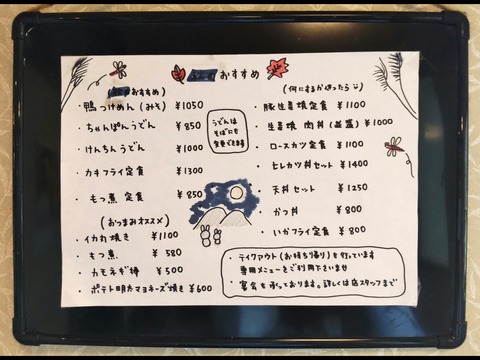 おすすめ
(おすすめ)
・鴨つけめん(みそ) ¥1050
・ちゃんぽんうどん ¥850
・けんちんうどん ¥1000
・カキフライ定食 ¥1300
・もつ煮定食 ¥850
うどんは
そばにも
変更できます
(おつまみオススメ)
・イカ丸焼き ¥1100
・もつ煮 ¥580
・カモネギ棒 ¥500
・ポテト明太マヨネーズ焼き ¥600
(何にするか迷ったら)
・豚生姜焼定食 ¥1100
・生姜焼肉丼(並盛) ¥1000
・ロースカツ定食 ¥1100
・ヒレカツ丼セット ¥1400
・天丼セット ¥1250
・かつ丼 ¥800
・いかフライ定食 ¥800
・テイクアウト(お持ち帰り)を行っています
専用メニューをご利用下さいませ
・宴会も承っております。詳しくは店スタッフまで